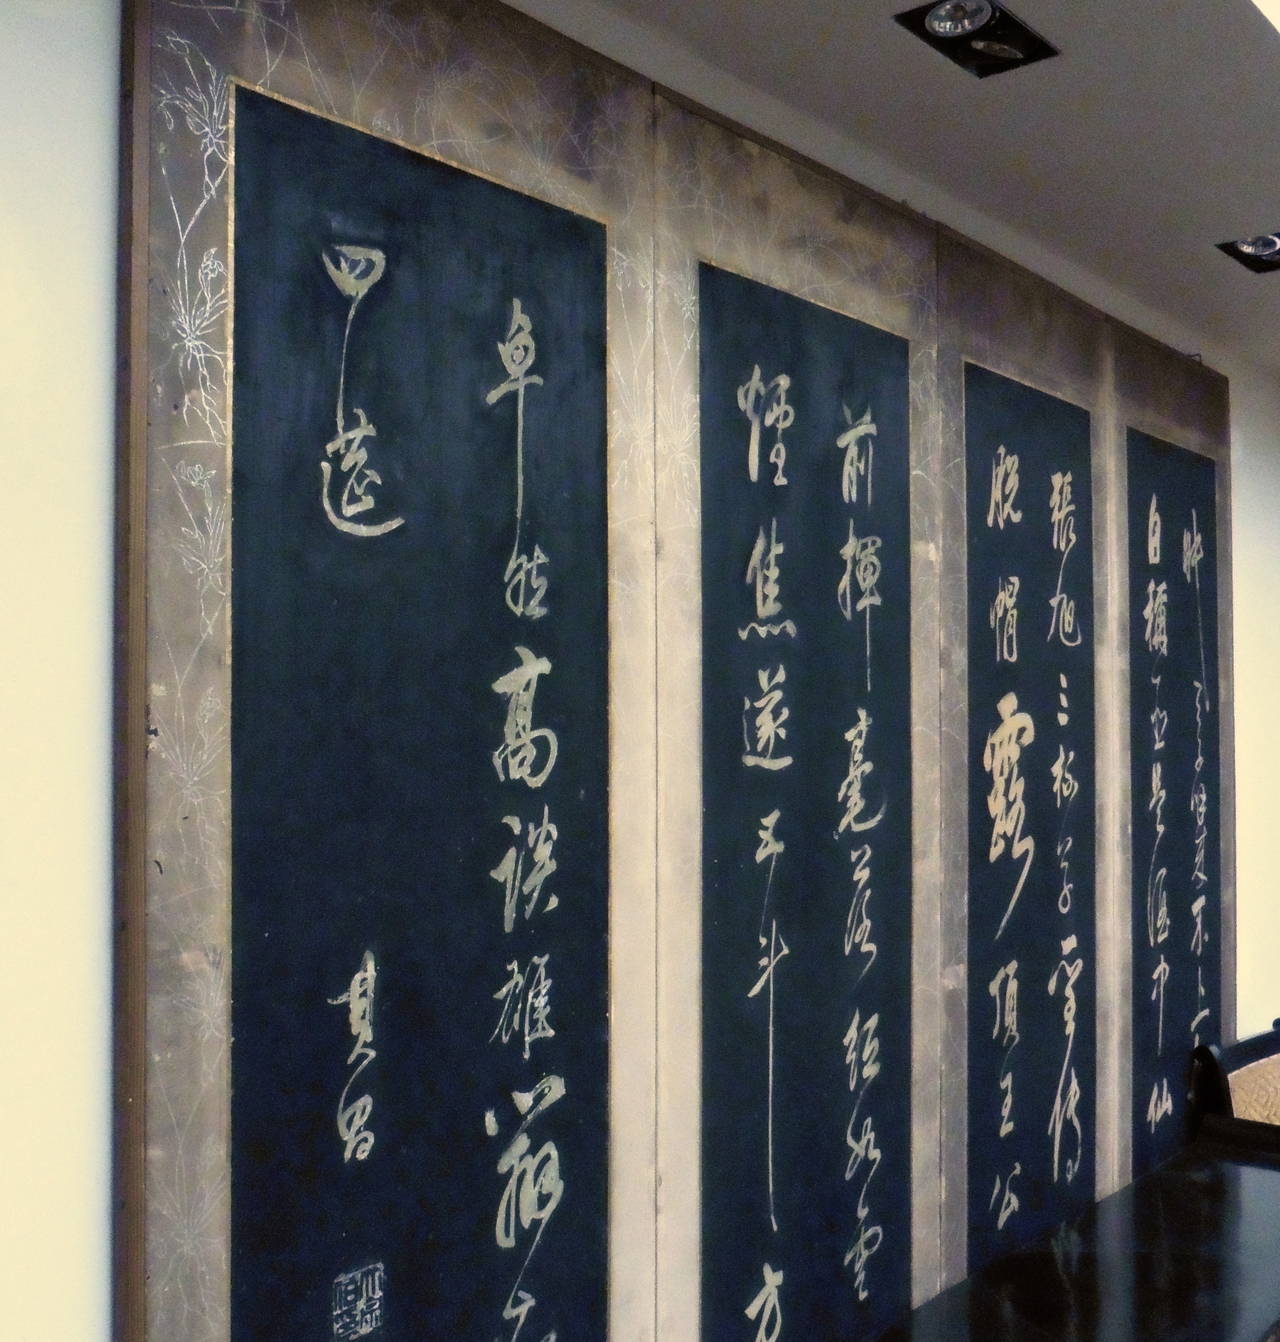 船天子呼來不上
自稱臣是酒中仙
張旭三杯草聖傳
脫帽露頂王公
前揮毫落紙如雲
煙焦遂五斗方
卓然高談雄辯驚
四筵
其昌